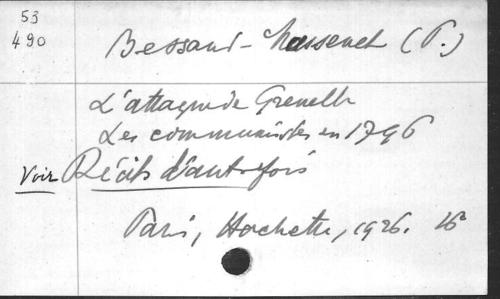 53
490
Bessand-Massenet (P.)
L'attaque de Grenelle
Les communistes en 1796
Voir Récits d'autrefois
Paris, Hachette, 1926. 16°